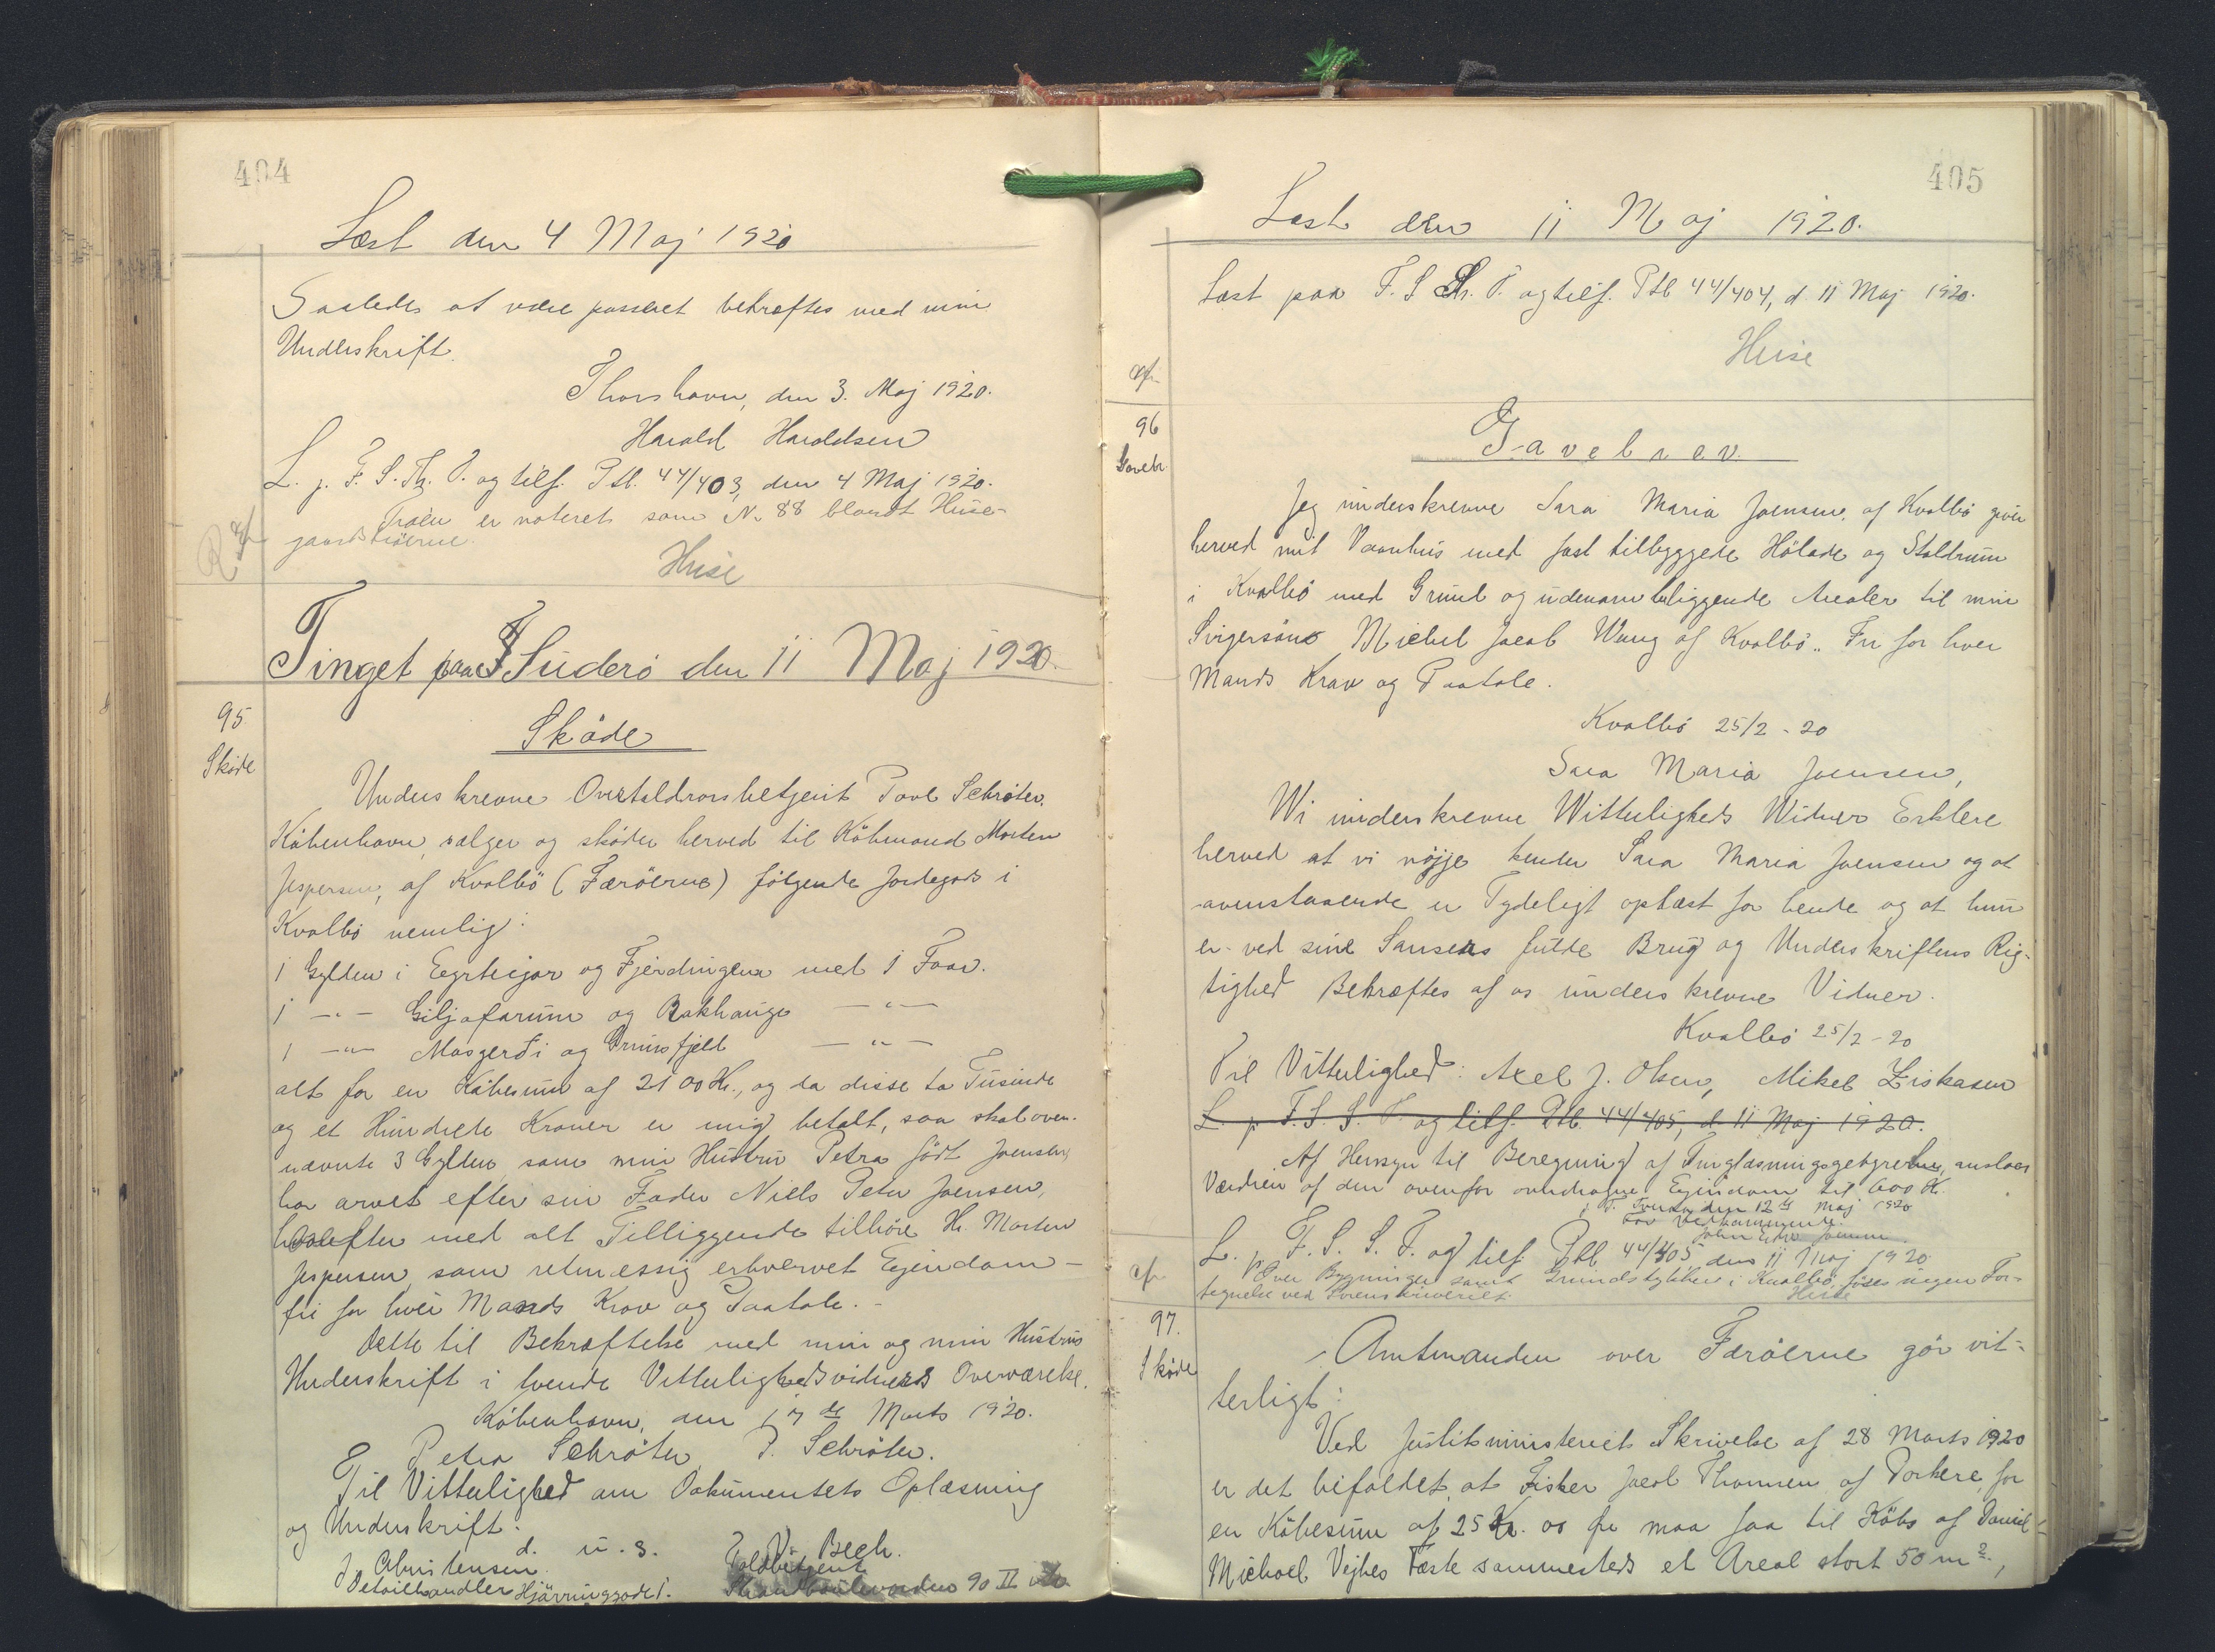 404
Læst den 4 Maj 1920
Saaledes at være passeret bekræftes med min
Underskrift.
Thorshavn, den 3. Maj 1920.
Harald Haraldsen
L. p. F. S. Th. T. og tilf. Ptb. 44/403, den 4 Maj 1920.
er noteret som N. 88 blandt
Huse
Tinget paa Suderö den 11 Maj 1920.
95
Sköde
Sköde
Underskrevne Povl Schröter,
Köbenhavn, sælger og sköder herved til Köbmand Morten
Jespersen, af Kvalbö (Færöerne) fölgende Jordegods i
Kvalbö nemlig:
1 Gylden i og Fjerdingen med 1 Faar.
1 -"- Giljafarum og Bakhauge -"-
1 -"- Mosgerði og Grimsfjeld -"-
alt for en Köbesum af 2100 Kr., og da disse to Tusinde
og et Hundrede Kroner er mig betalt, saa skal oven-
nævnte 3 Gylden, som min Hustru Petra födt Joensen,
har arvet efter sin Fader Niels Peter Joensen,
herefter med alt Tilliggende tilhöre Hr. Morten
Jespersen, som retmæssig erhvervet Ejendom -
fri for hver Mands Krav og Paatale. -
Dette til Bekræftelse med min og min Hustrus
Underskrift i tvende Vitterlighedsvidners Overværelse.
Köbenhavn, den 17 de Marts 1920.
Petra Schröter P. Schröter.
Til Vitterlighed om Dokumentets Oplæsning
og Underskrift.
d. u. s.
J Christensen. V. Bech.
Detailhandler Hjörringgade 1. Toldbetjent
90 II
405
Læst den 11 Maj 1920.
Læst paa F. S S. T. og tilf. Ptb 44/404, d. 11 Maj 1920.
Huse
cfr
96
Gavebr.
Gavebrev.
Jeg underskrevne Sara Maria Joensen, af Kvalbö giver
herved mit Vaanhus med fast tilbyggede Hölade og Staldrum
i Kvalbö med Grund og udenom beliggende Arealer til min
Svigersön Michel Jacob Wang af Kvalbö. Fri for hver
Mands Krav og Paatale.
Kvalbö 25/2 - 20
Sara Maria Joensen,
Wi underskrevne Witterligheds Widner Erklere
herved at vi nöjje kender Sara Maria Joensen og at
ovenstaaende er Tydeligt oplæst for hende og at hun
er ved sine Sansers fulde Brug og Underskriftens Rig-
tighed Bekræftes af os underskrevne Vidner.
Kvalbö 25/2 - 20
Til Vitterlighed: Axel J. Olsen, Mikel Ziskasen
L. p F. S. S. T. og tilf. Ptb. 44/405, d. 11 Maj 1920.
Af Hensyn til Beregning af Tinglæsningsgebyrerne, anslaaes
Værdien af den ovenfor overdragne Ejendom til 600 Kr.
Tveraa den 12 te Maj 1920
For Vedkommende.
L. p F. S. S. T. og tilf Ptb 44/405, den 11 Maj 1920.
Over Bygninger samt Grundstykker i Kvalbö föres ingen For-
tegnelse ved Sorenskriveriet.
Huse
cfr
97.
Sköde
Amtmanden over Færöerne gör vit-
terligt:
Ved Justitsministeriets Skrivelse af 28 Marts 1920
er det bifaldet, at Fisker Jacob Thomsen af Porkere, for
en Köbesum af 25 Kr. 00 Öre maa faa til Köbs af Daniel
Michael Vejhes Fæste sammesteds et Areal stort 50 m²,